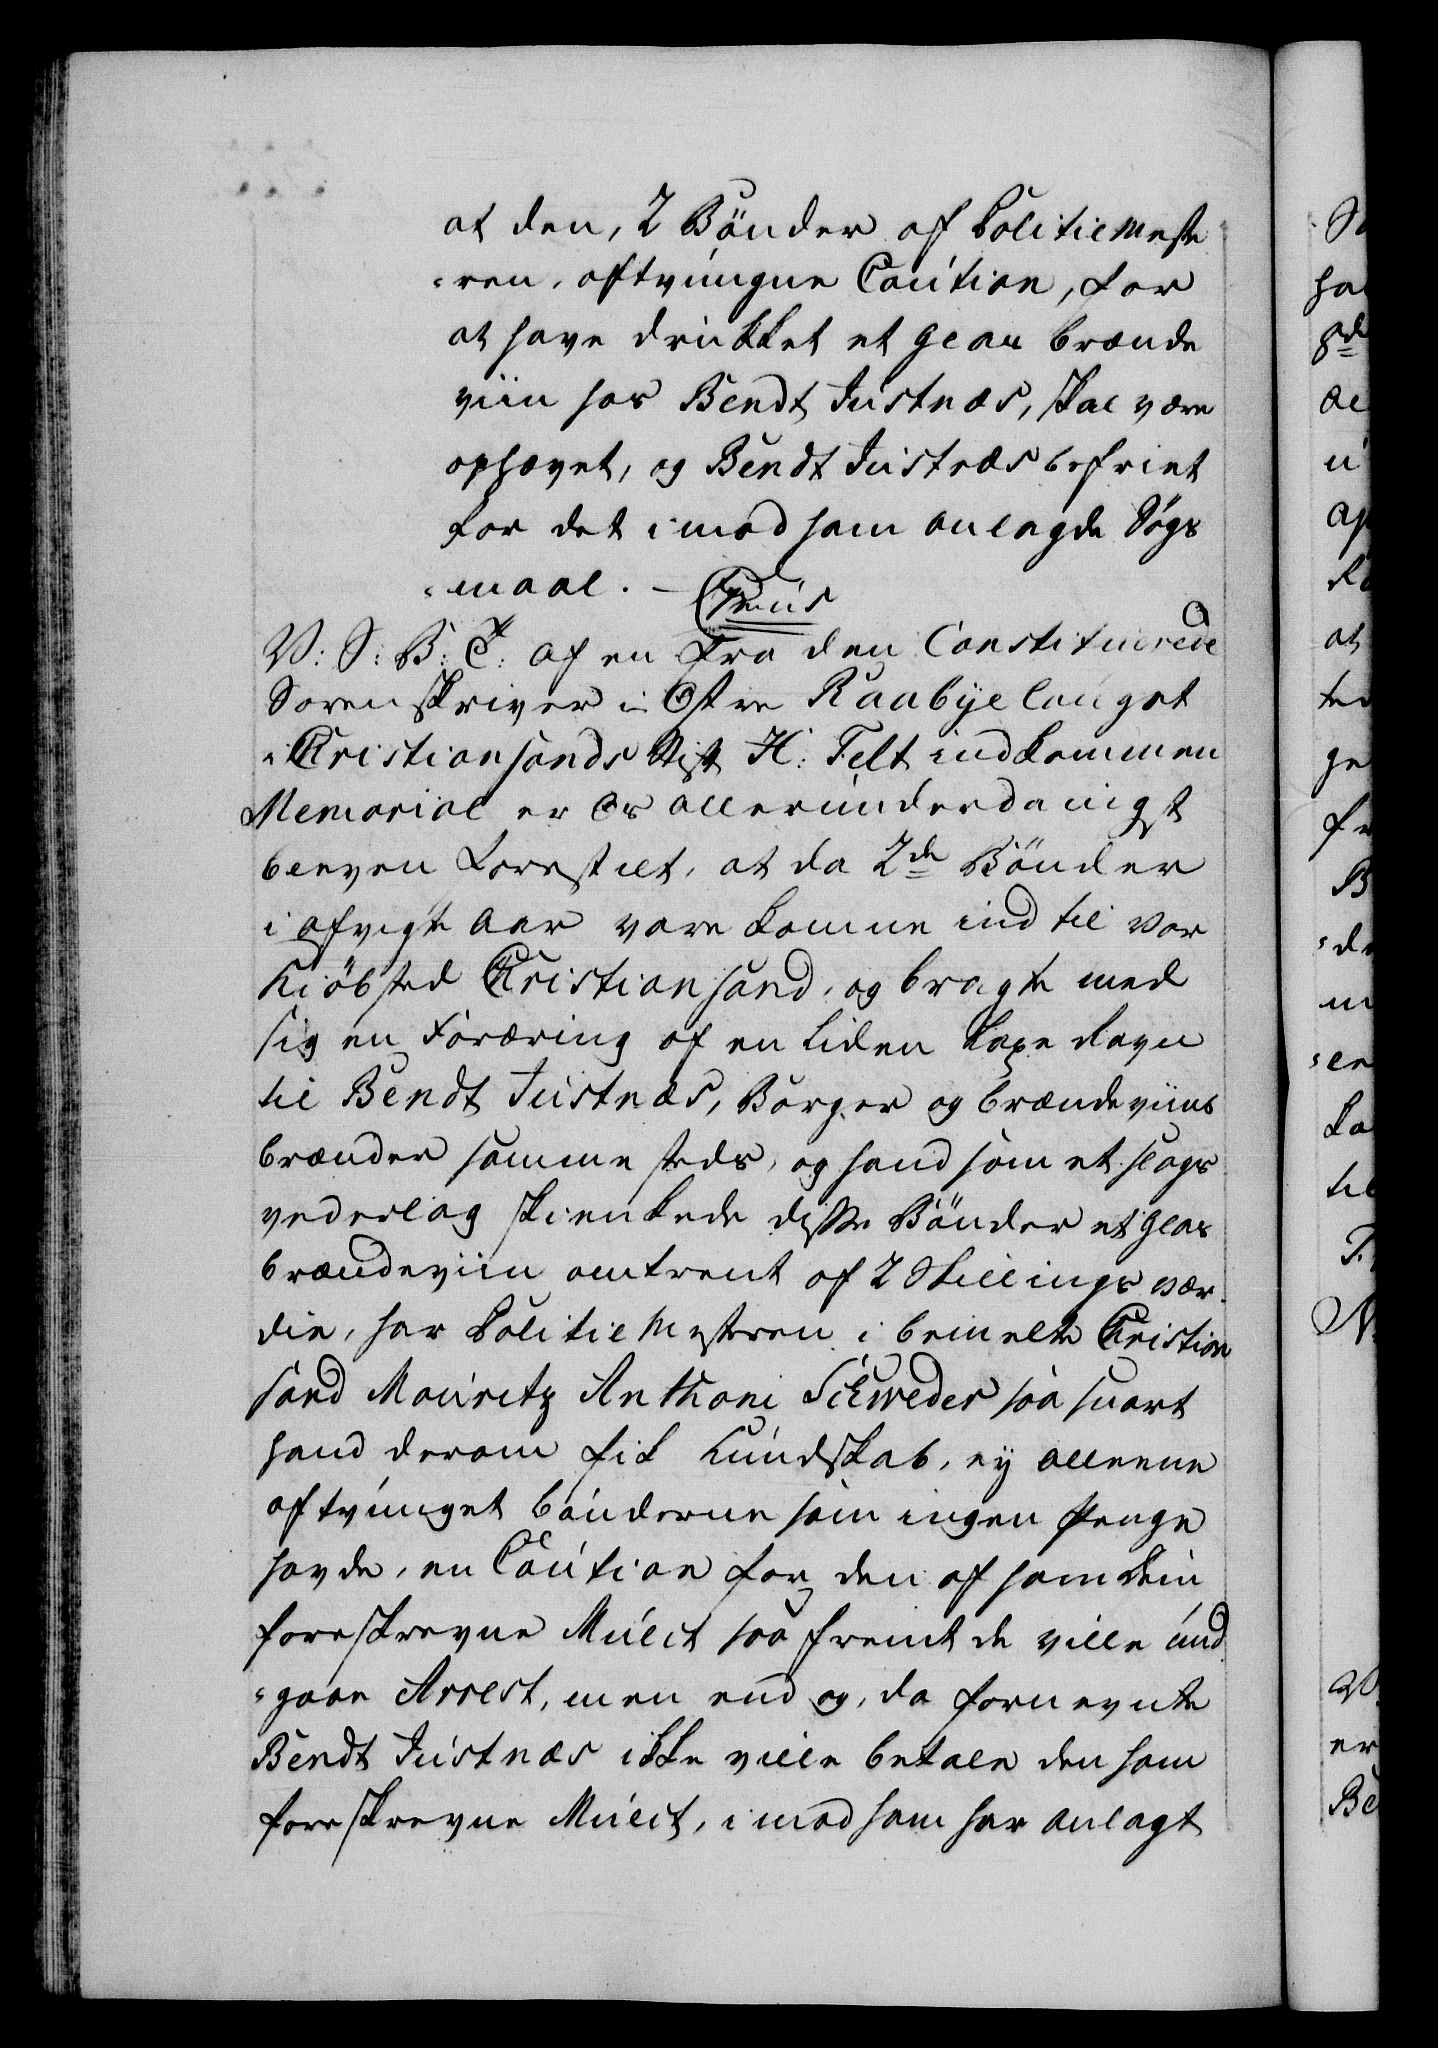 at den, 2 Bönder af Politiemeste
=ren, aftvungne Caution, for
at have drukket et glas brænde
viin hos Bendt Justnæs, skal være
ophævet, og Bendt Justnæs befriet
for det imod ham anlagde Søgs
=maal. –
V: G: B: T: af en fra den Constituerede
Sorenskriver i Østre Raabyelauget
i Christiansands Stift H: Telt indkommen
Memorial er Os allerunderdanigst
bleven forestilt, at da 2de Bönder
i afvigte Aar vare komne ind til vor
Kiöbsted Christiansand, og bragte med
sig en Foræring af en liden Laxe
til Bendt Justnæs, Borger og brændeviins
brænder sammesteds, og hand som et slags
vederlag skienkede disse Bönder et glas
brændeviin omtrent af 2 Skillings vær-
die, har Politiemesteren i bemelte Christian
sand Mauritz Anthoni Schweder saa snart
hand derom fik Kundskab, ey alleene
aftvunget bönderne som ingen Penge
havde, en Caution for den af ham dem
foreskrevne Mulct saa fremt de ville und
=gaae Arrest, men end og, da fornevnte
Bendt Justnæs ikke ville betale den ham
foreskrevne Mulct, imod ham har anlagt